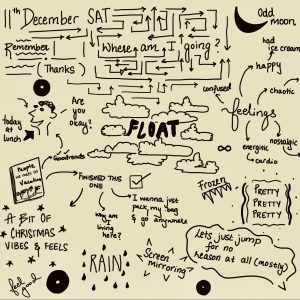 11th December SAT
Odd moon
Remember!
(Thanks)
Where am I going?
had
ice cream
happy
chaotic
confused
feelings
nostalgic
energetic
cardio
today
at
lunch
Are
you
okay?
FLOAT
Goodreads
People
we meet on
Vacation
FINISHED THIS
ONE
I wanna just
pack my bag
& go anywhere
why am
I
living
here?
Frozen
PRETTY
PRETTY
PRETTY
A BIT OF
CHRISTMAS
VIBES & FEELS
feel good
RAIN
Screen
mirroring
Lets just jump
for no
reason at all (mostly)